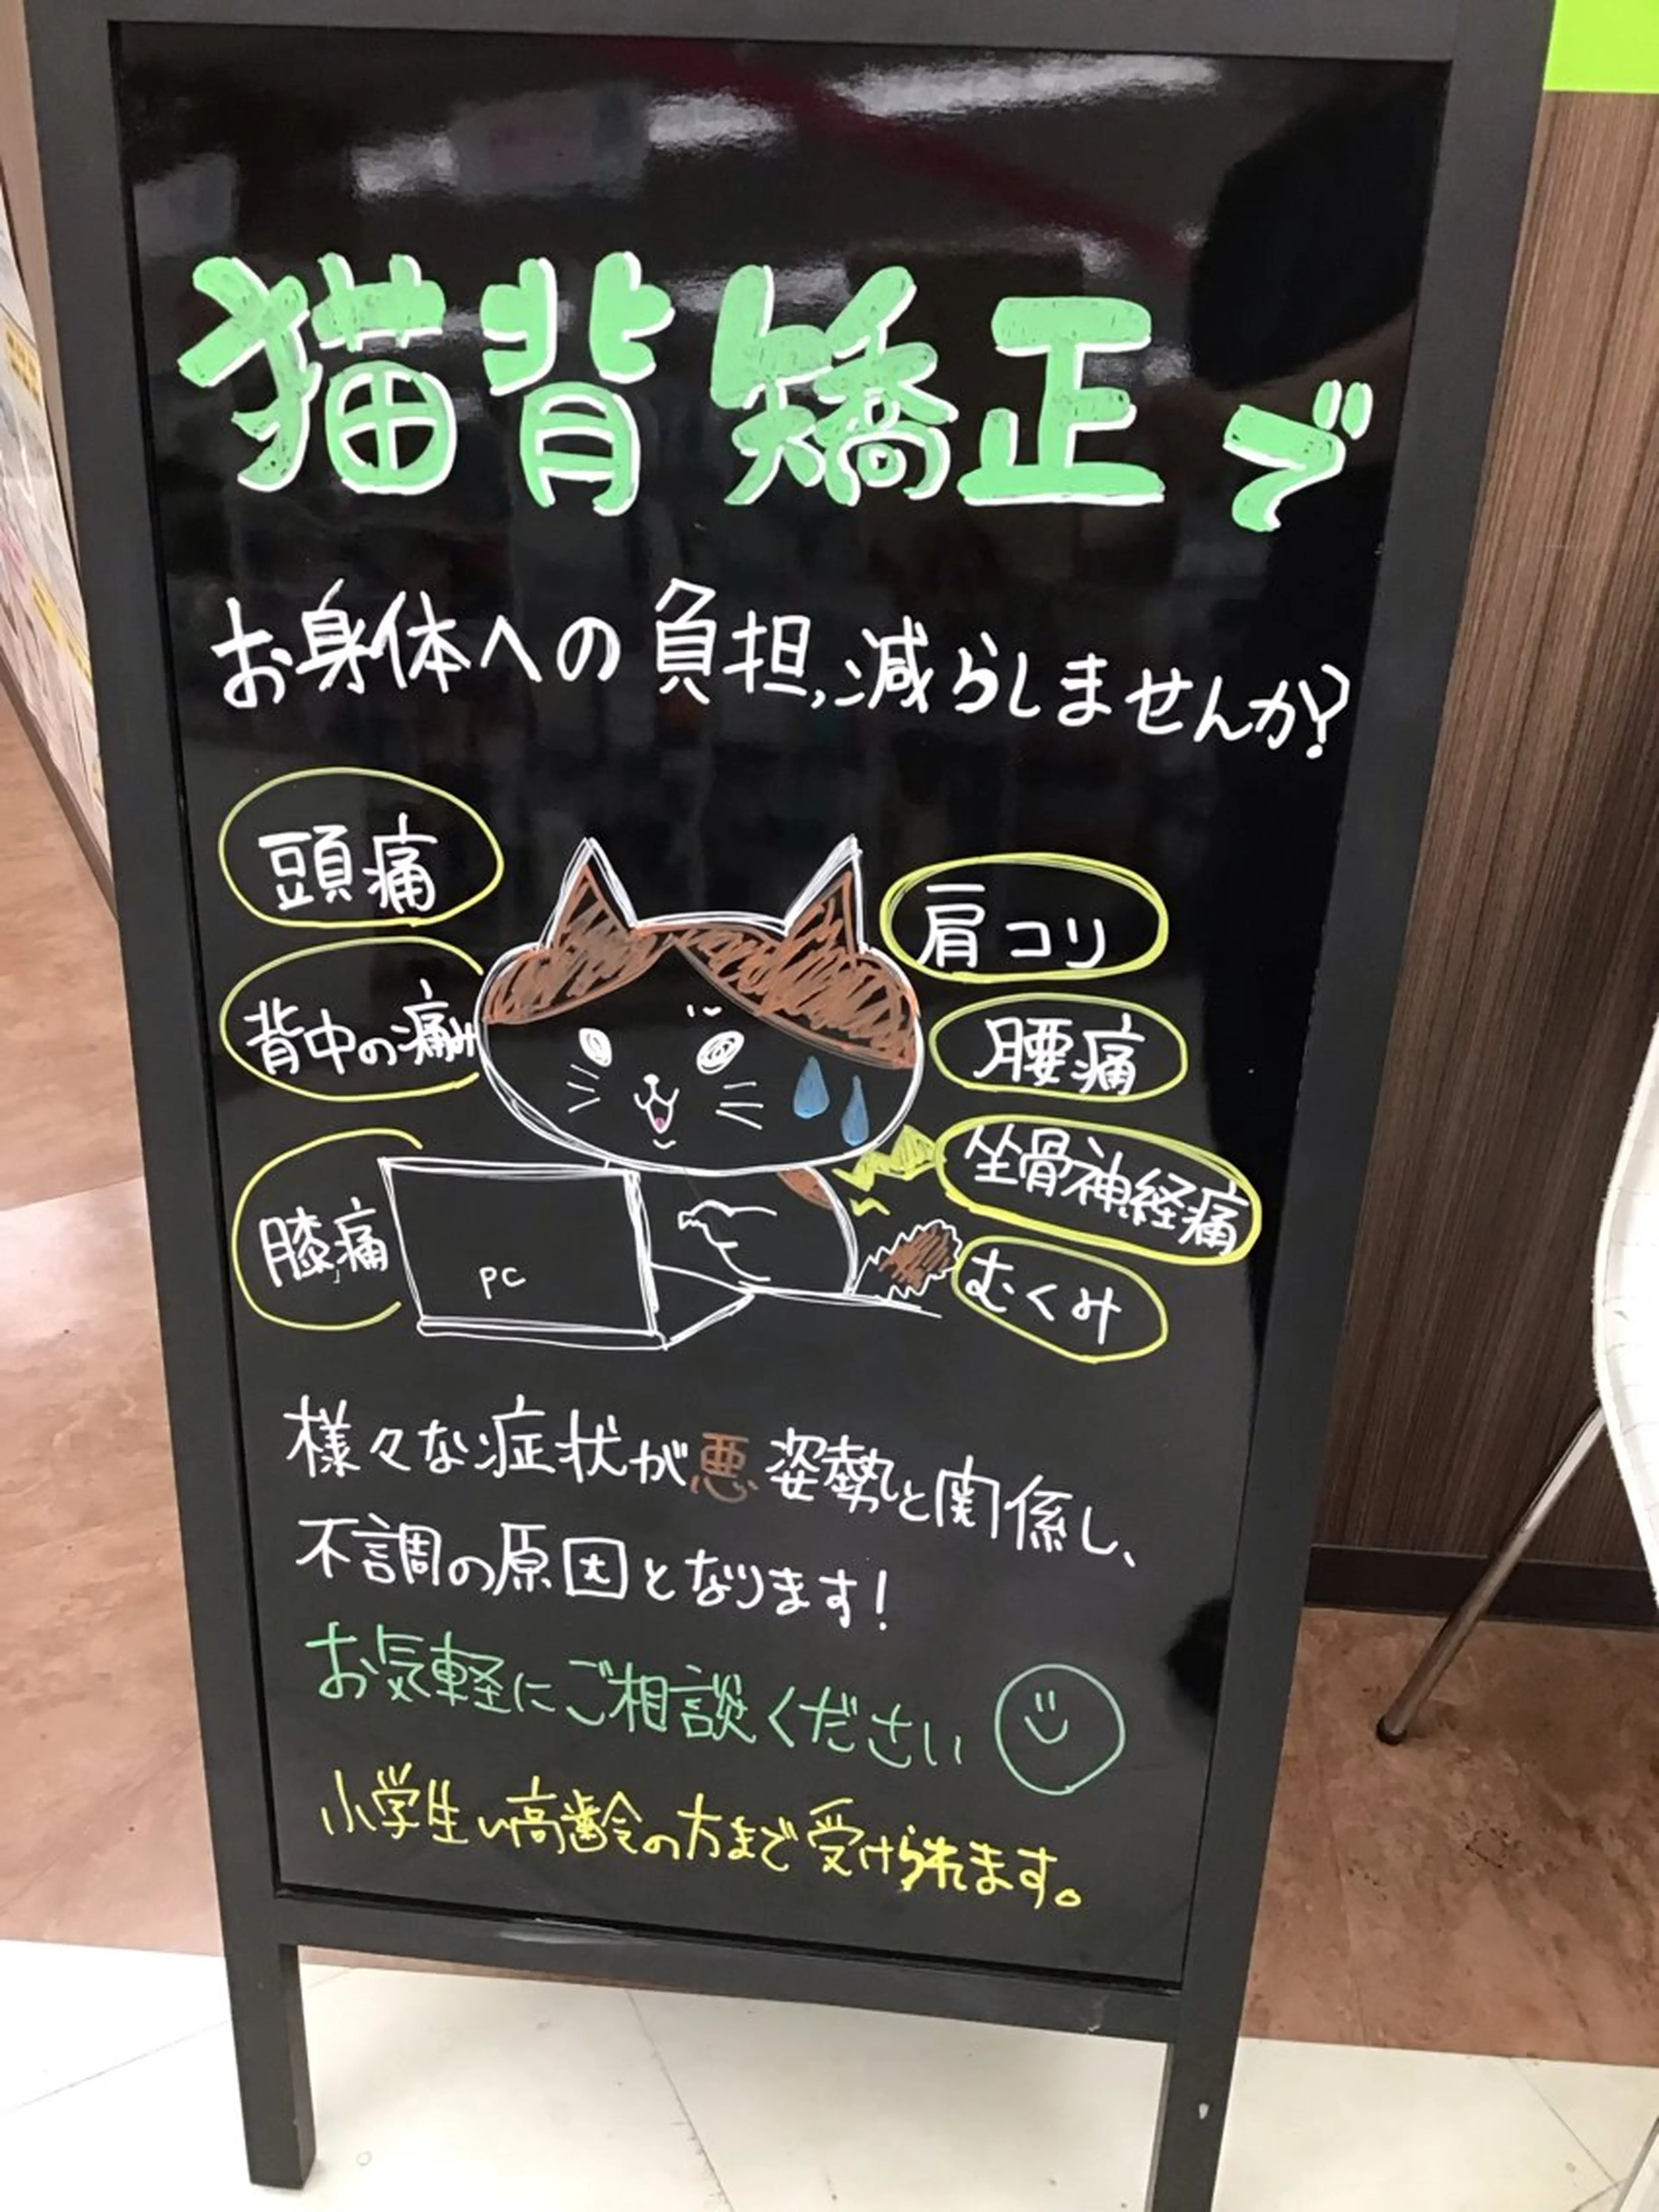 猫背矯正で
お身体への負担,減らしませんか?
頭痛
肩コリ
背中の痛み
腰痛
坐骨神経痛
膝痛
PC
むくみ
様々な症状が悪姿勢と関係し、
不調の原因となります!
お気軽にご相談ください
小学生〜高齢の方まで受けられます。